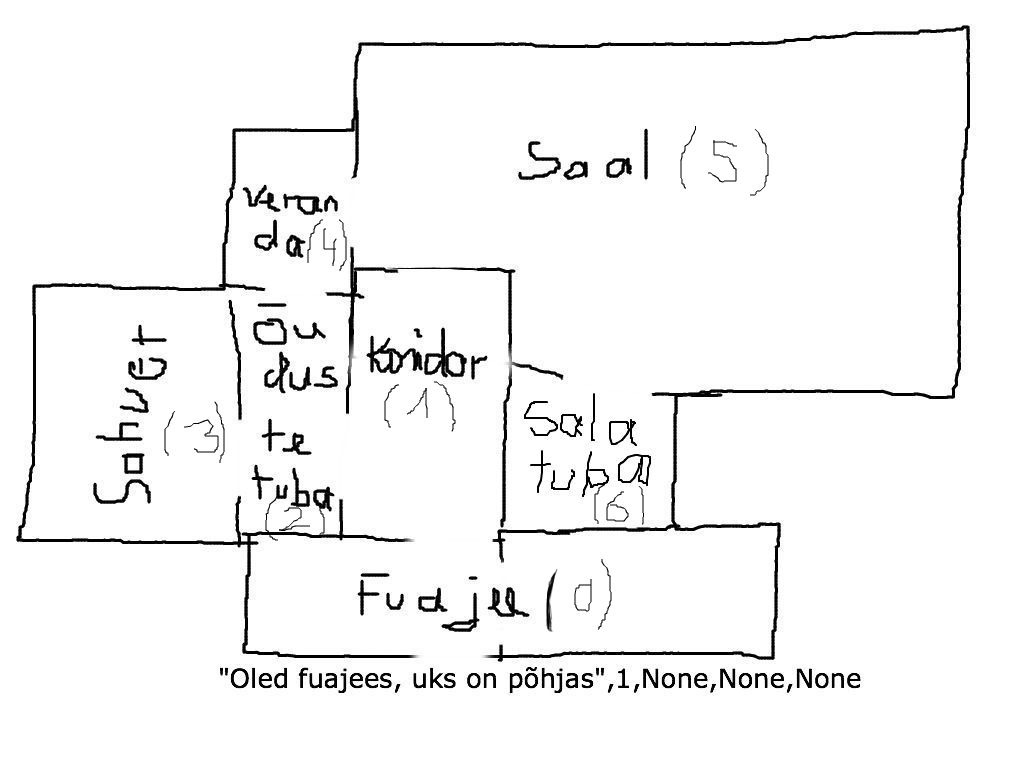 Saal (5)
veran
da (4)
Õu
dus
te
tuba
(2)
Koridor
(1)
Sahver
(3)
Sala
tuba
(6)
Fuajee (0)
"Oled fuajees, uks on põhjas",1,None,None,None